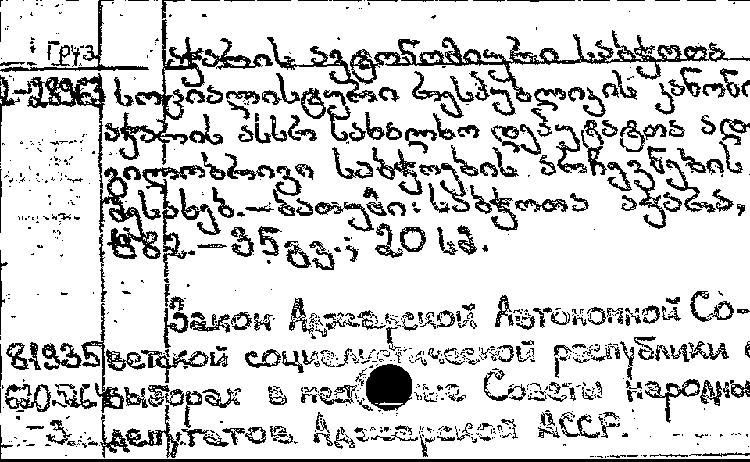 Груз. აჭარის ავტონომიური საბჭოთა
2-28963 სოციალისტური რესპუბლიკის კანონი
აჭარის ასსრ სახალხო დეპუტატთა ადგ
ილობრივი საბჭოების არჩევნების
შესახებ.—ბათუმი: საბჭოთა აჭარა,
1982.—35გვ.; 20 სმ.
Закон Аджарской Автономной Со-
81935 ветской социалистической республики о
выборах в местные Советы народных
депутатов Аджарской АССР.